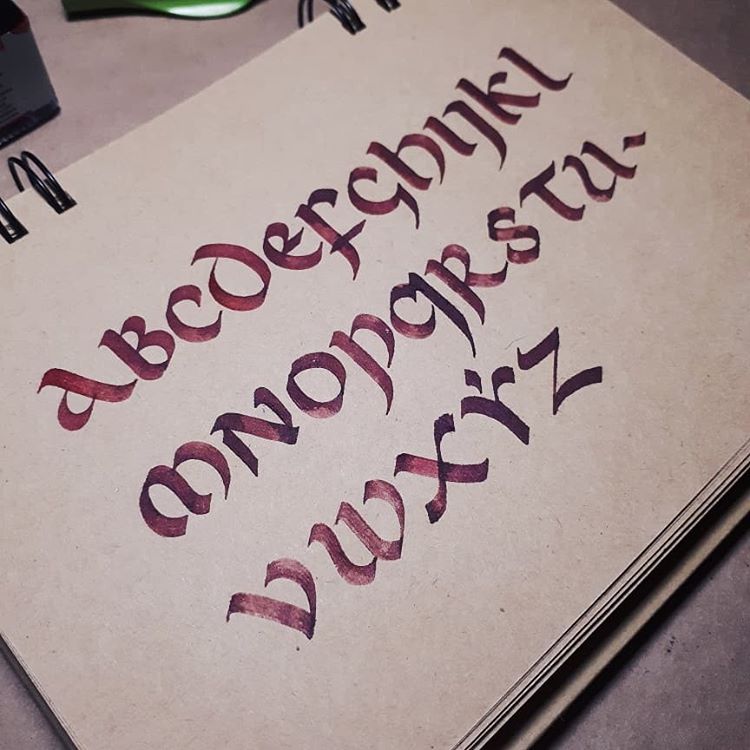 abcdefghijkl
mnopqrstu-
vwxÿz